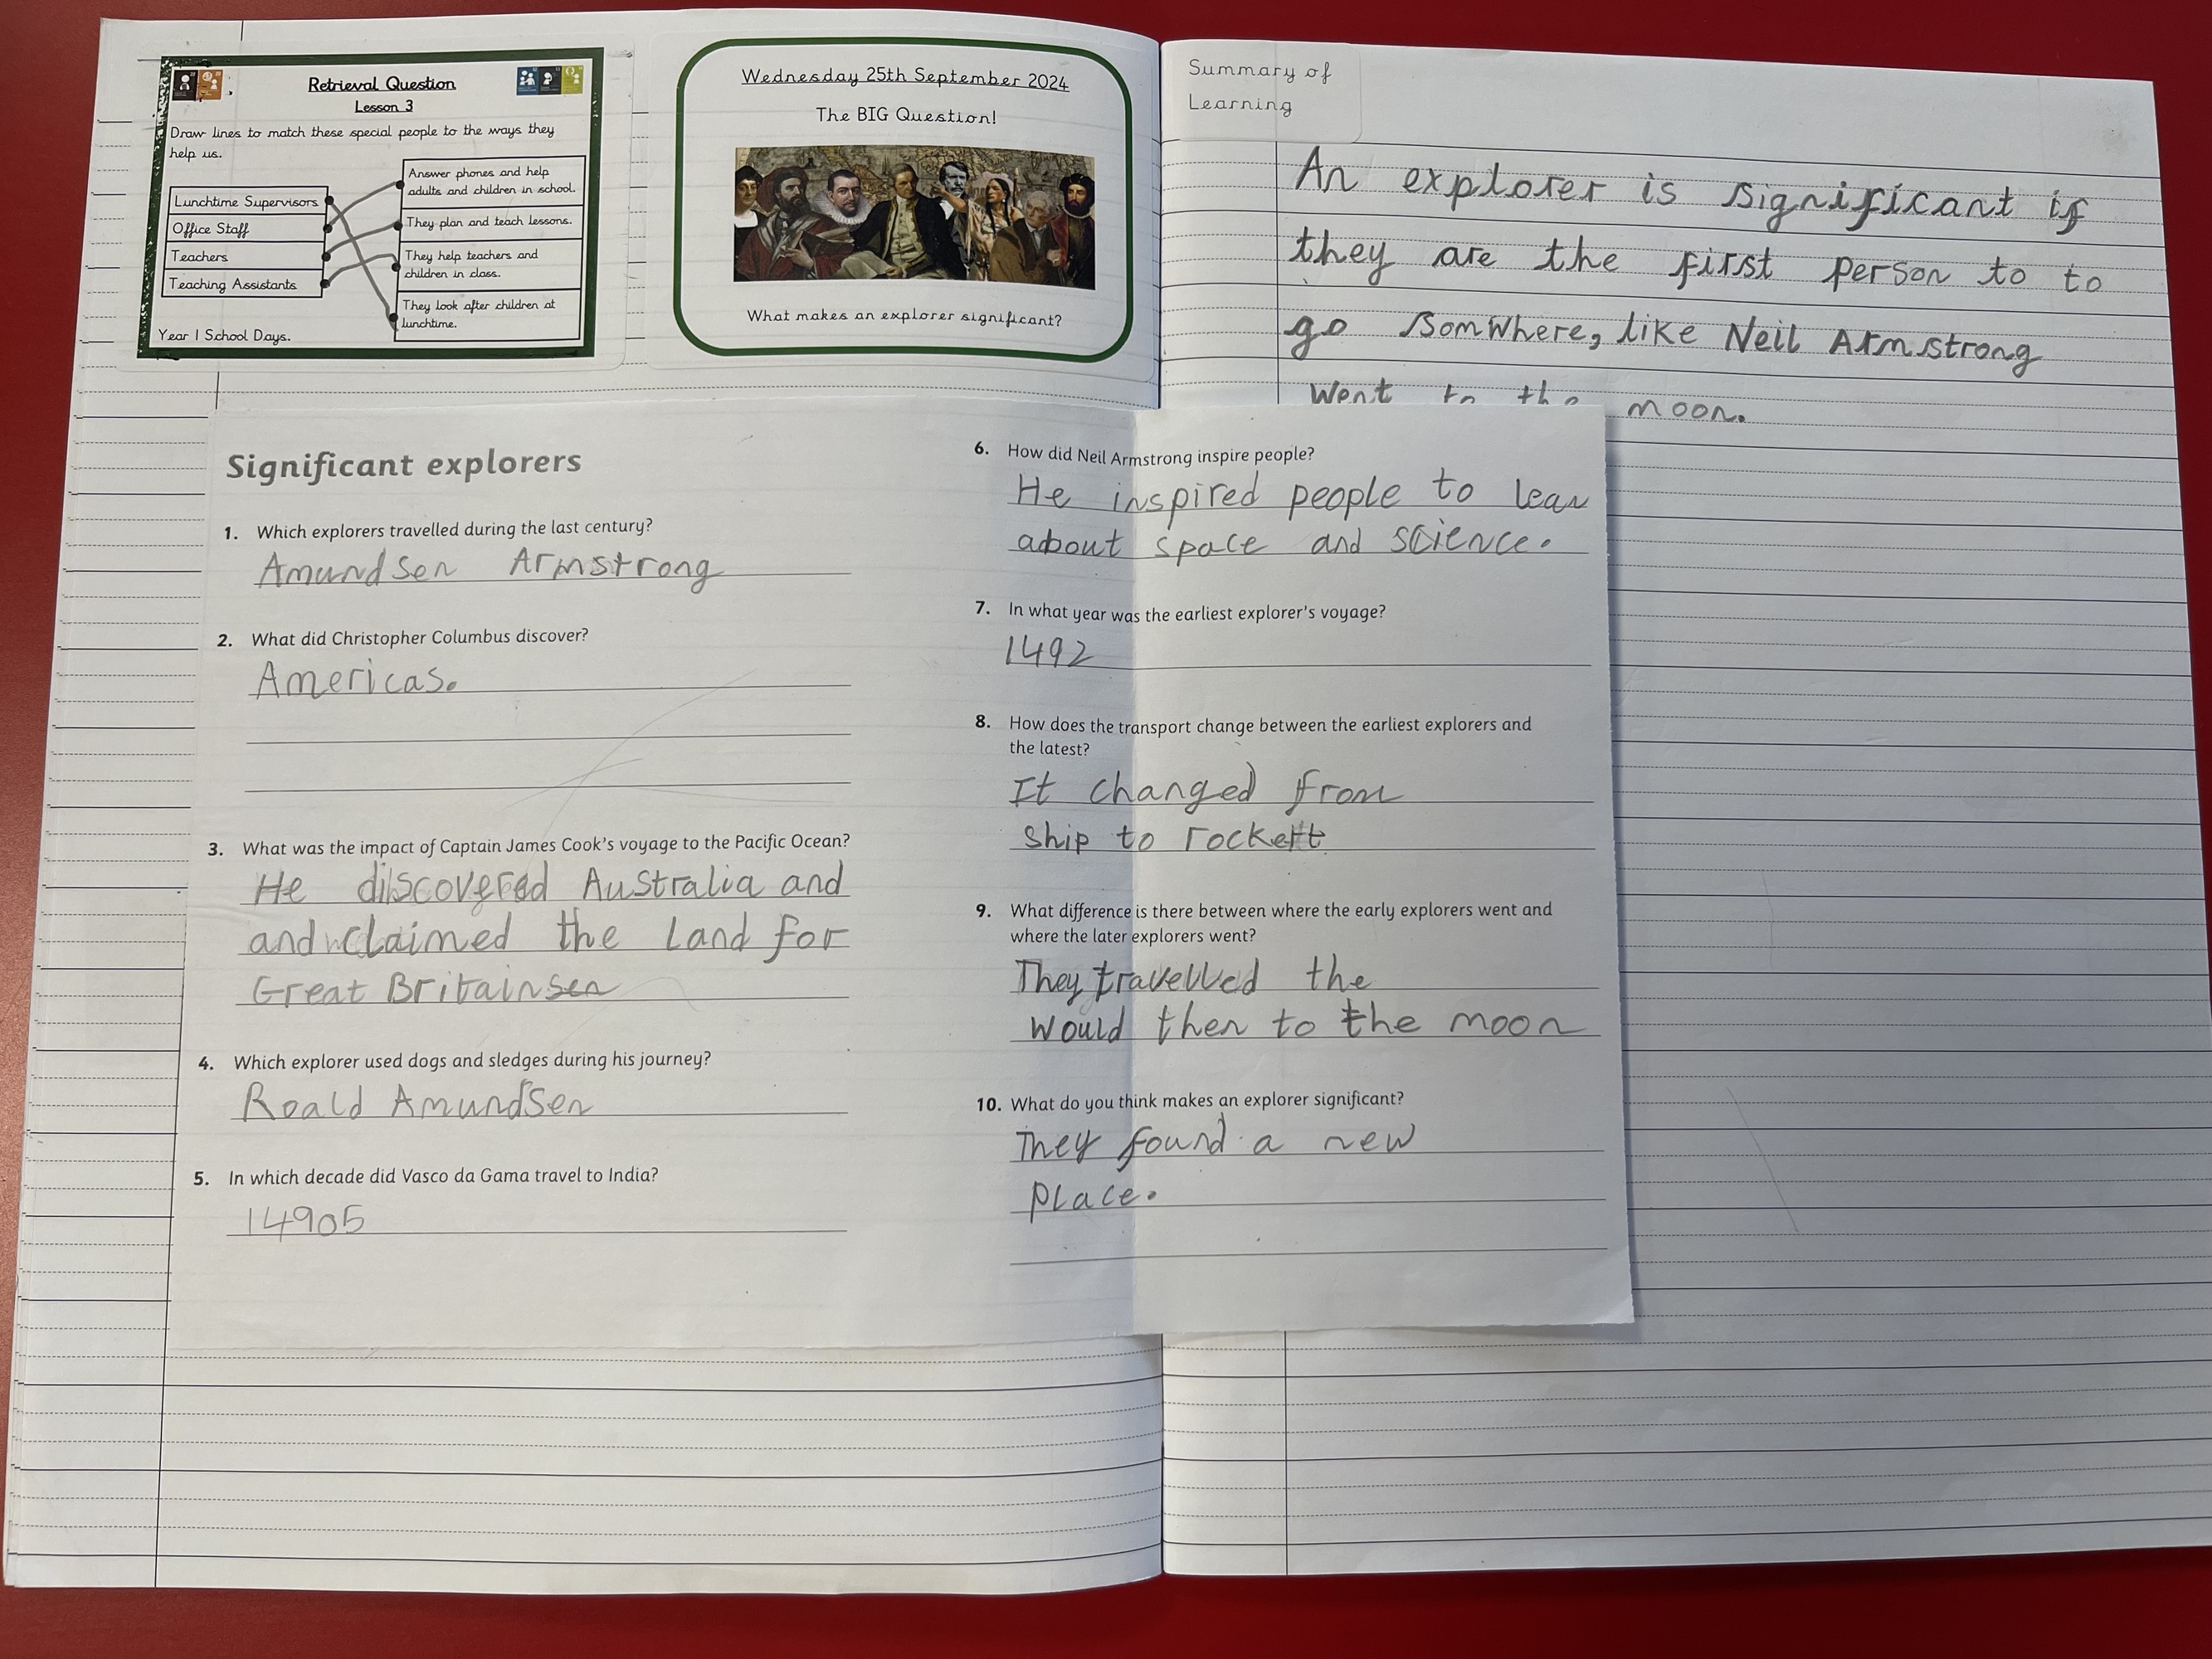 Retrieval Question
Lesson 3
Draw lines to match these special people to the ways they
help us.
Lunchtime Supervisors
Office Staff
Teachers
Teaching Assistants
Answer phones and help
adults and children in school.
They plan and teach lessons.
They help teachers and
children in class.
They look after children at
lunchtime.
Year 1 School Days.
Wednesday 25th September 2024
The BIG Question!
What makes an explorer significant?
Significant explorers
1. Which explorers travelled during the last century?
Amundsen Armstrong
2. What did Christopher Columbus discover?
Americas.
3. What was the impact of Captain James Cook's voyage to the Pacific Ocean?
He discovered Australia and
and claimed the Land for
Great Britain
4. Which explorer used dogs and sledges during his journey?
Roald Amundsen
5. In which decade did Vasco da Gama travel to India?
14905
6. How did Neil Armstrong inspire people?
He inspired people to lear
about space and science.
7. In what year was the earliest explorer's voyage?
1492
8. How does the transport change between the earliest explorers and
the latest?
It changed from
ship to rockett
9. What difference is there between where the early explorers went and
where the later explorers went?
They travelled the
would then to the moon
10. What do you think makes an explorer significant?
They found a new
place.
Summary of
Learning
An explorer is significant if
they are the first person to to
go somwhere, like Neil Armstrong
Went to the moon.